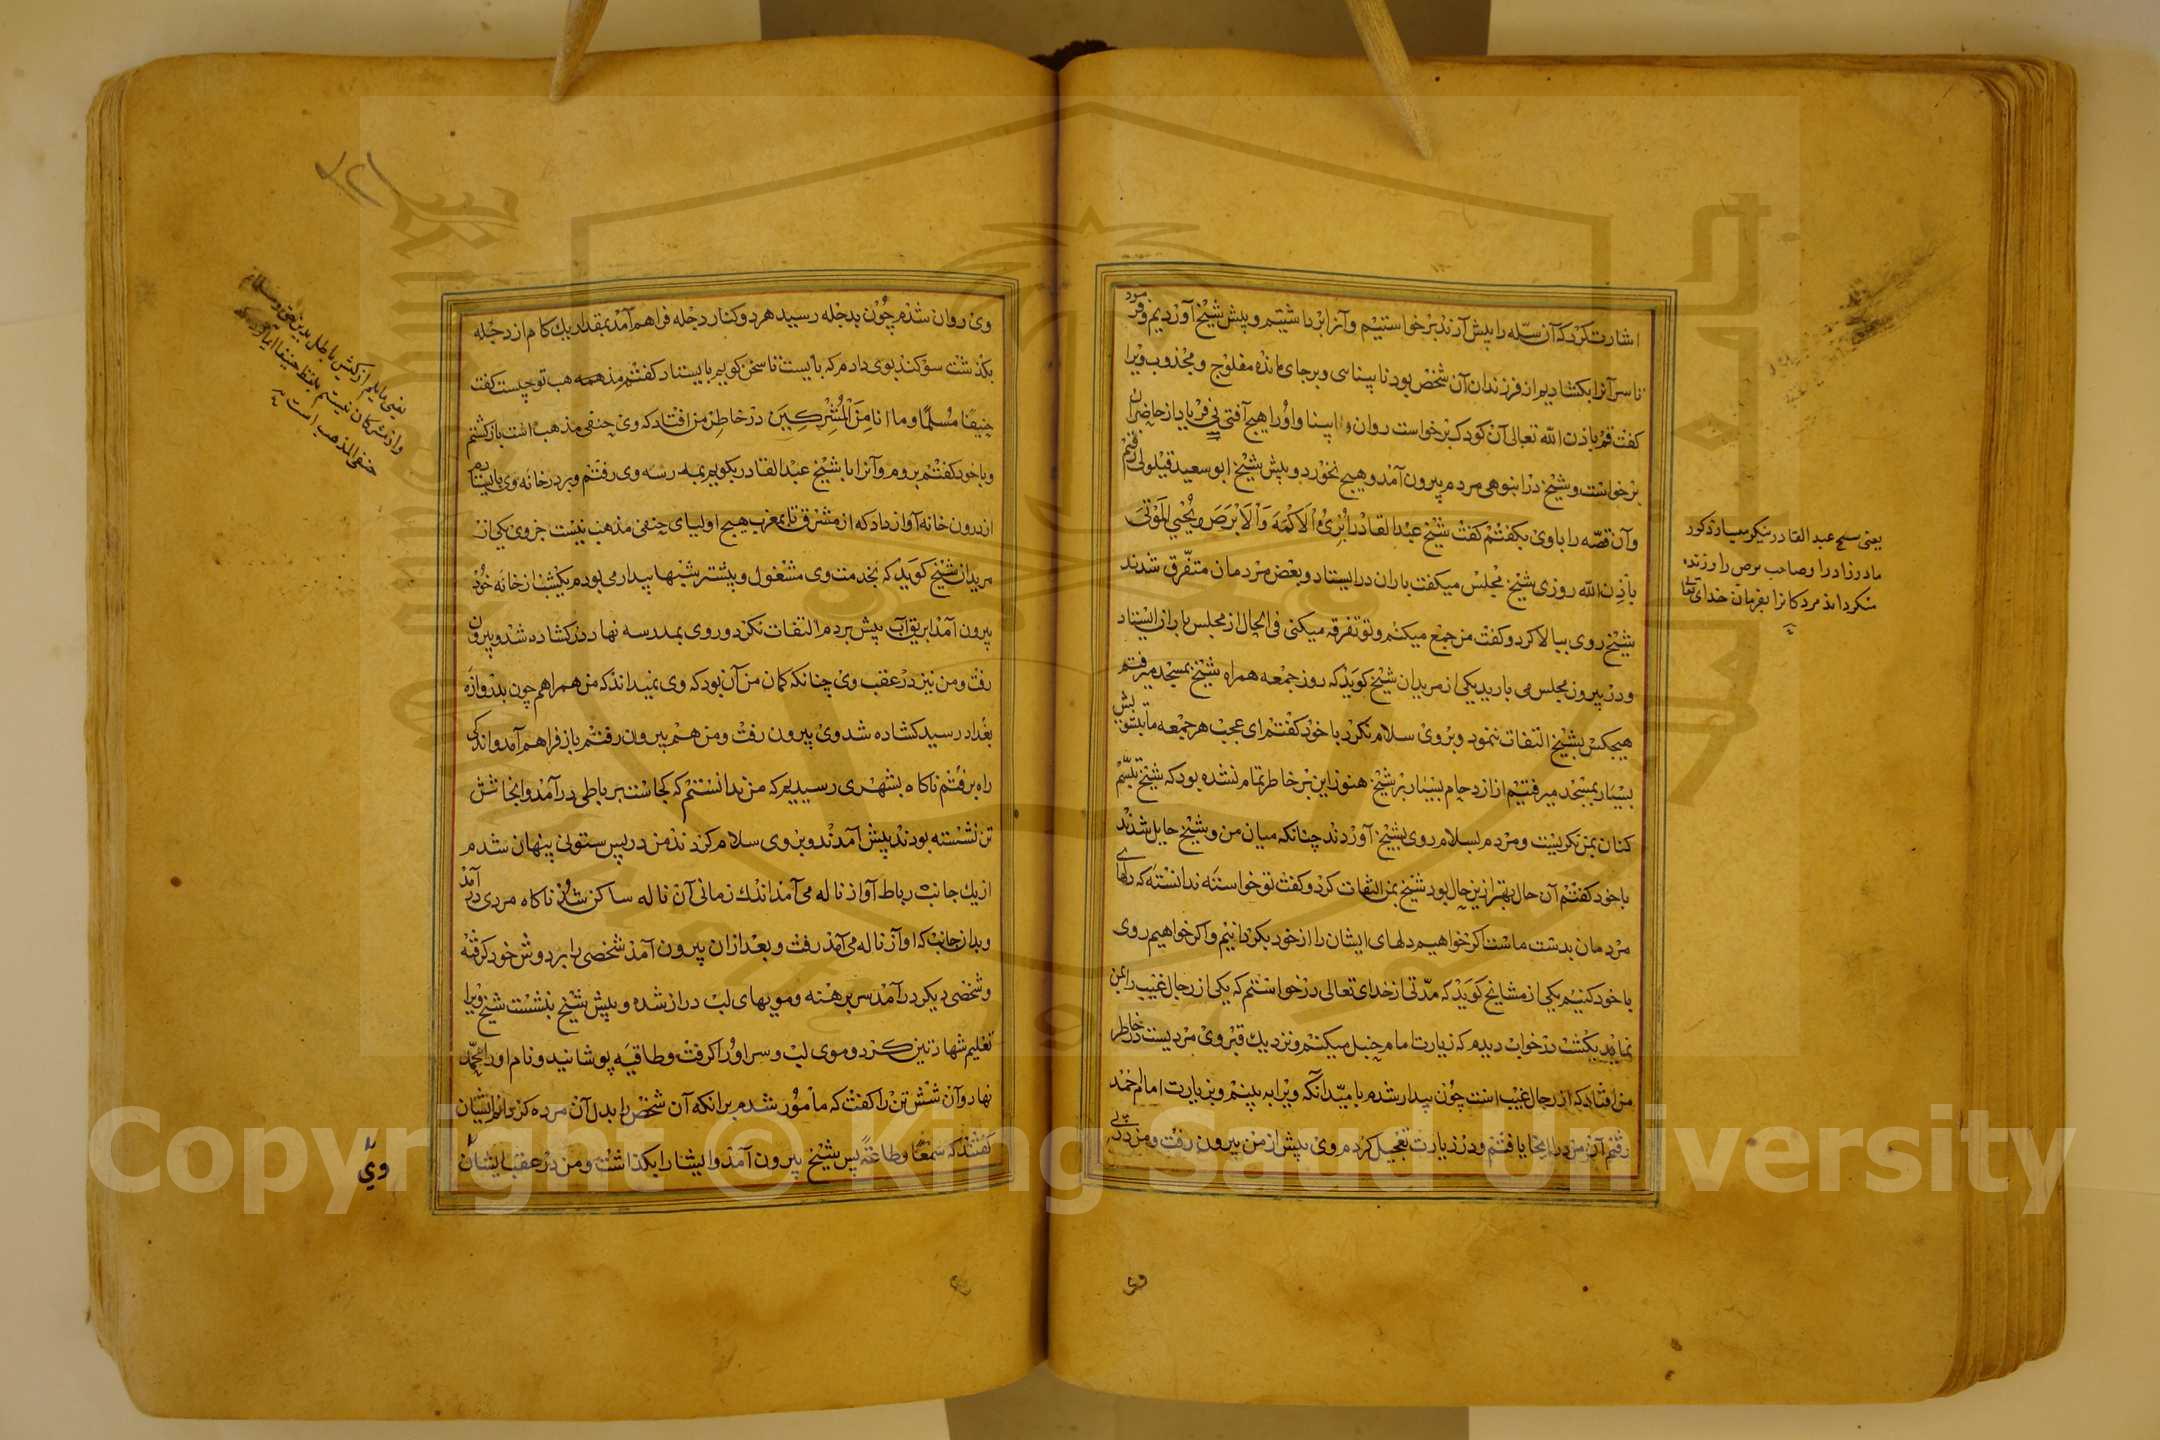 اشارت کرد که آن سله را پیش آرند برخواستیم و آنرا برداشتیم و پیش شیخ آوردیم فرمود
تا سر آنرا بکشادیم از فرزندان آن شخص بود نابینا سی و برجای مانده مفلوج و مجذوب ویرا
کفت قم باذن الله تعالی آن کودک برخواست روان و بینا و اورا هیچ آفتی نی فریاد از حاضران
برخواست و شیخ در انبوهی مردم بیرون آمد و هیچ نخورد و پیش شیخ ابو سعید قیلولی رفتم
و آن قصه را باوی بکفتم کفت شیخ عبد القادر یُبْرِئُ الْاَکْمَهَ وَالْاَبْرَصَ وَیُحْیِی الْمَوْتَی
بأذن الله روزی شیخ مجلس میکفت باران درایستاد و بعض مردمان متفرق شدند
شیخ روی ببالا کرد و کفت من جمع میکنم و تو تفرقه میکنی فی الحال از مجلس باران ایستاد
و در بیرون مجلس می بارید یکی از مریدان شیخ کوید که روز جمعه همراه شیخ بمسجد میرفتم
هیچکس بشیخ التفات ننمود و بروی سلام نکرد با خود کفتم ای عجب هر جمعه ما بتشویش
بسیار بمسجد میرفتیم از ازدحام بسیار بر شیخ هنوز این بر خاطر تمام نشده بود که شیخ تبسم
کنان بمن نکریست و مردم بسلام روی بشیخ آوردند چنانکه میان من و شیخ حایل شدند
با خود کفتم آن حال بهتر ازین حال بود شیخ بمن التفات کرد و کفت تو خواسته ندانستهٔ که دلهای
مردمان بدست ماست اکر خواهیم دلهای ایشان را از خود بکردانیم و اکر خواهیم روی
با خود کنیم یکی از مشایخ کوید که مدتی از خدای تعالی درخواستم که یکی از رجال غیب را بمن
نماید یکشب در خواب دیدم که زیارت امام حنبل میکنم و نزدیك قبر وی مردیست در خاطر
من افتاد که از رجال غیب است چون بیدار شدم بامید آنکه ویرا به بینم و بزیارت امام احمد
رفتم آن مرد را آنجا یافتم و در زیارت تعجیل کردم وی پیش از من بیرون رفت و من در پی
یعنی شیخ عبد القادر نیکو میسازد کور
مادرزاد را و صاحب برص را و زنده
میکرداند مردکانرا بفرمان خدای تعالی
وی روان شدم چون بدجله رسید هر دو کنار دجله فراهم آمد بمقدار یك کام از دجله
بکذشت سوکند بوی دادم که بایست تا سخن کویم بایستاد کفتم مذهب تو چیست کفت
حنیفًا مُسلمًا وما انا مِنَ الْمُشْرِکِینَ در خاطر من افتاد که وی حنفی مذهب است بازکشتم
و با خود کفتم بروم و آنرا با شیخ عبد القادر بکویم بمدرسه وی رفتم و بر در خانه وی بایستادم
از درون خانه آواز داد که از مشرق تا بمغرب هیچ اولیای حنفی مذهب نیست جز وی یکی از
مریدان شیخ کوید که بخدمت وی مشغول و بیشتر شبها بیدار می بودم یکشب از خانه خود
بیرون آمد ابریق آب پیش بردم التفات نکرد و روی بمدرسه نهاد در کشاده شد و بیرون
رفت و من نیز در عقب وی چنانکه کمان من آن بود که وی نمیداند که من همراهم چون بدروازه
بغداد رسید کشاده شد وی بیرون رفت و من هم بیرون رفتم باز فراهم آمد و اندکی
راه برفتم ناکاه بشهری رسیدیم که من ندانستم که کجاست برباطی درآمد و آنجا شش
تن نشسته بودند پیش آمدند و بر وی سلام کردند من در پس ستونی پنهان شدم
از یك جانب رباط آواز ناله می آمد اندك زمانی آن ناله ساکن شد ناکاه مردی درآمد
و بدان جانب که آواز ناله می آمد رفت و بعد از آن بیرون آمد شخصی را بر دوش خود کرفته
و شخصی دیکر درآمد سر برهنه و مویهای لب دراز شده و پیش شیخ بنشست شیخ ویرا
تعلیم شهادتین کرد و موی لب و سر او را کرفت و طاقیه پوشانید و نام اورا محمد
نهاد و آن شش تن را کفت که مامور شدم برانکه آن شخص را بدل آن مرده کردانم ایشان
کفتند که سَمْعًا وطاعَةً پس شیخ بیرون آمد و ایشانرا بکذاشت و من در عقب ایشان
وی
یعنی مایلم از کیش باطل بدین حق و مسلمانم
و از مشرکان نیستم بلفظ حنیفا
حنفی المذهب است
Copyright © King Saud University